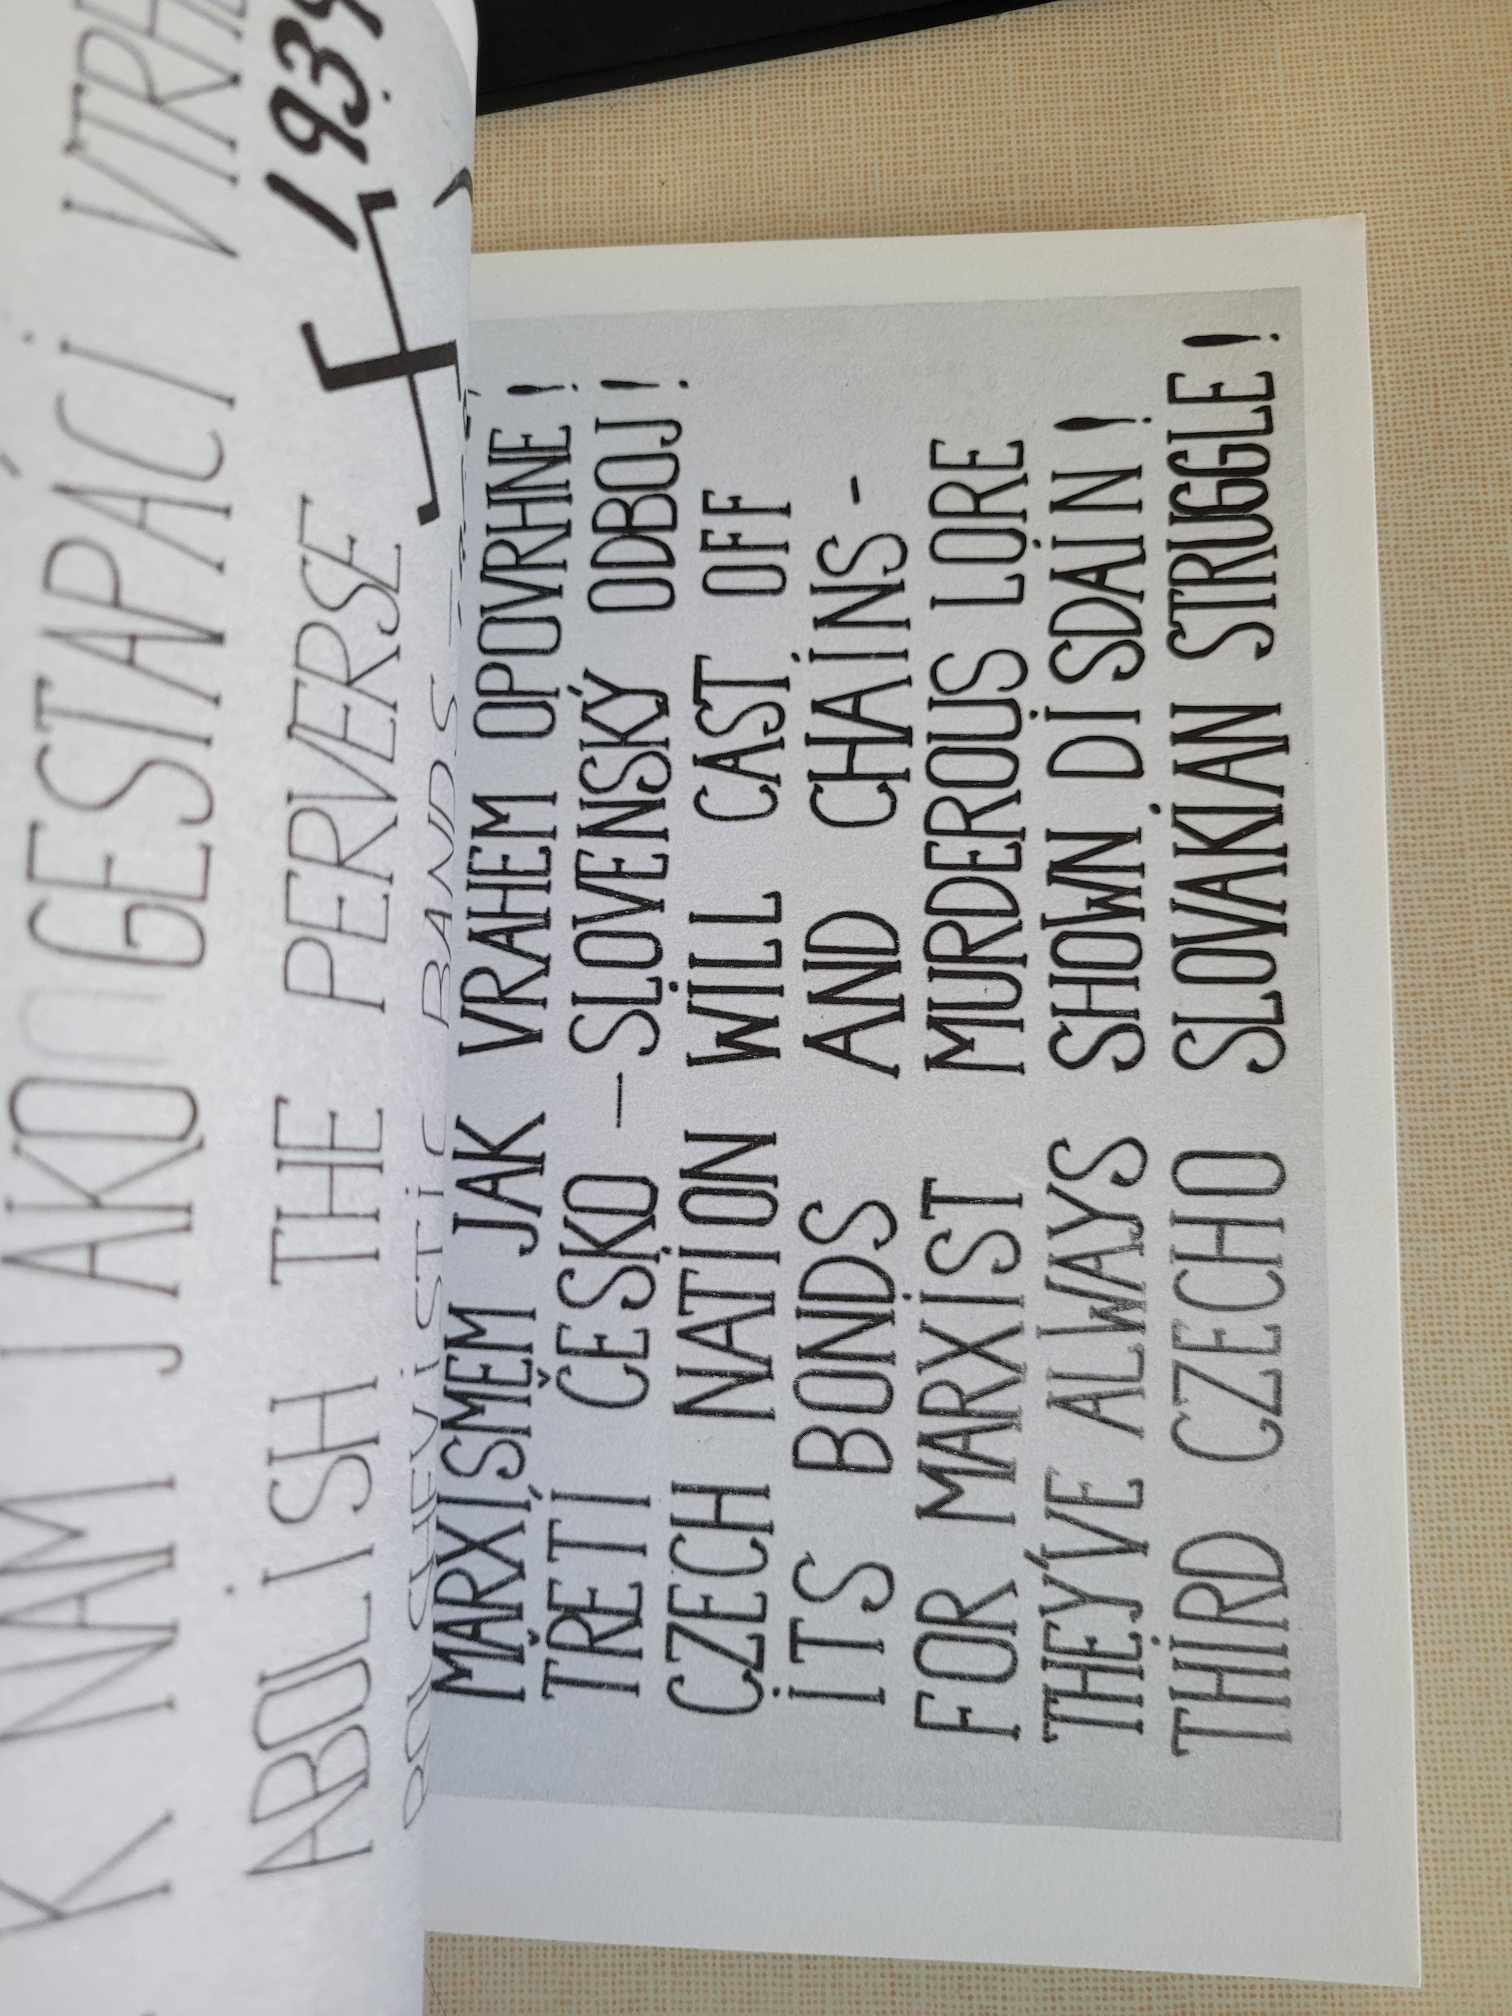 K NAM JAKO GESTAPÁCI VTRH
1939
ABOLISH THE PERVERSE
BANDS
MARXISMEM JAK VRAHEM OPOVRHNE!
TŘETÍ ČESKO – SLOVENSKÝ ODBOJ!
CZECH NATION WILL CAST OFF
ITS BONDS AND CHAINS -
FOR MARXIST MURDEROUS LORE
THEY'VE ALWAYS SHOWN DISDAIN!
THIRD CZECHO SLOVAKIAN STRUGGLE!